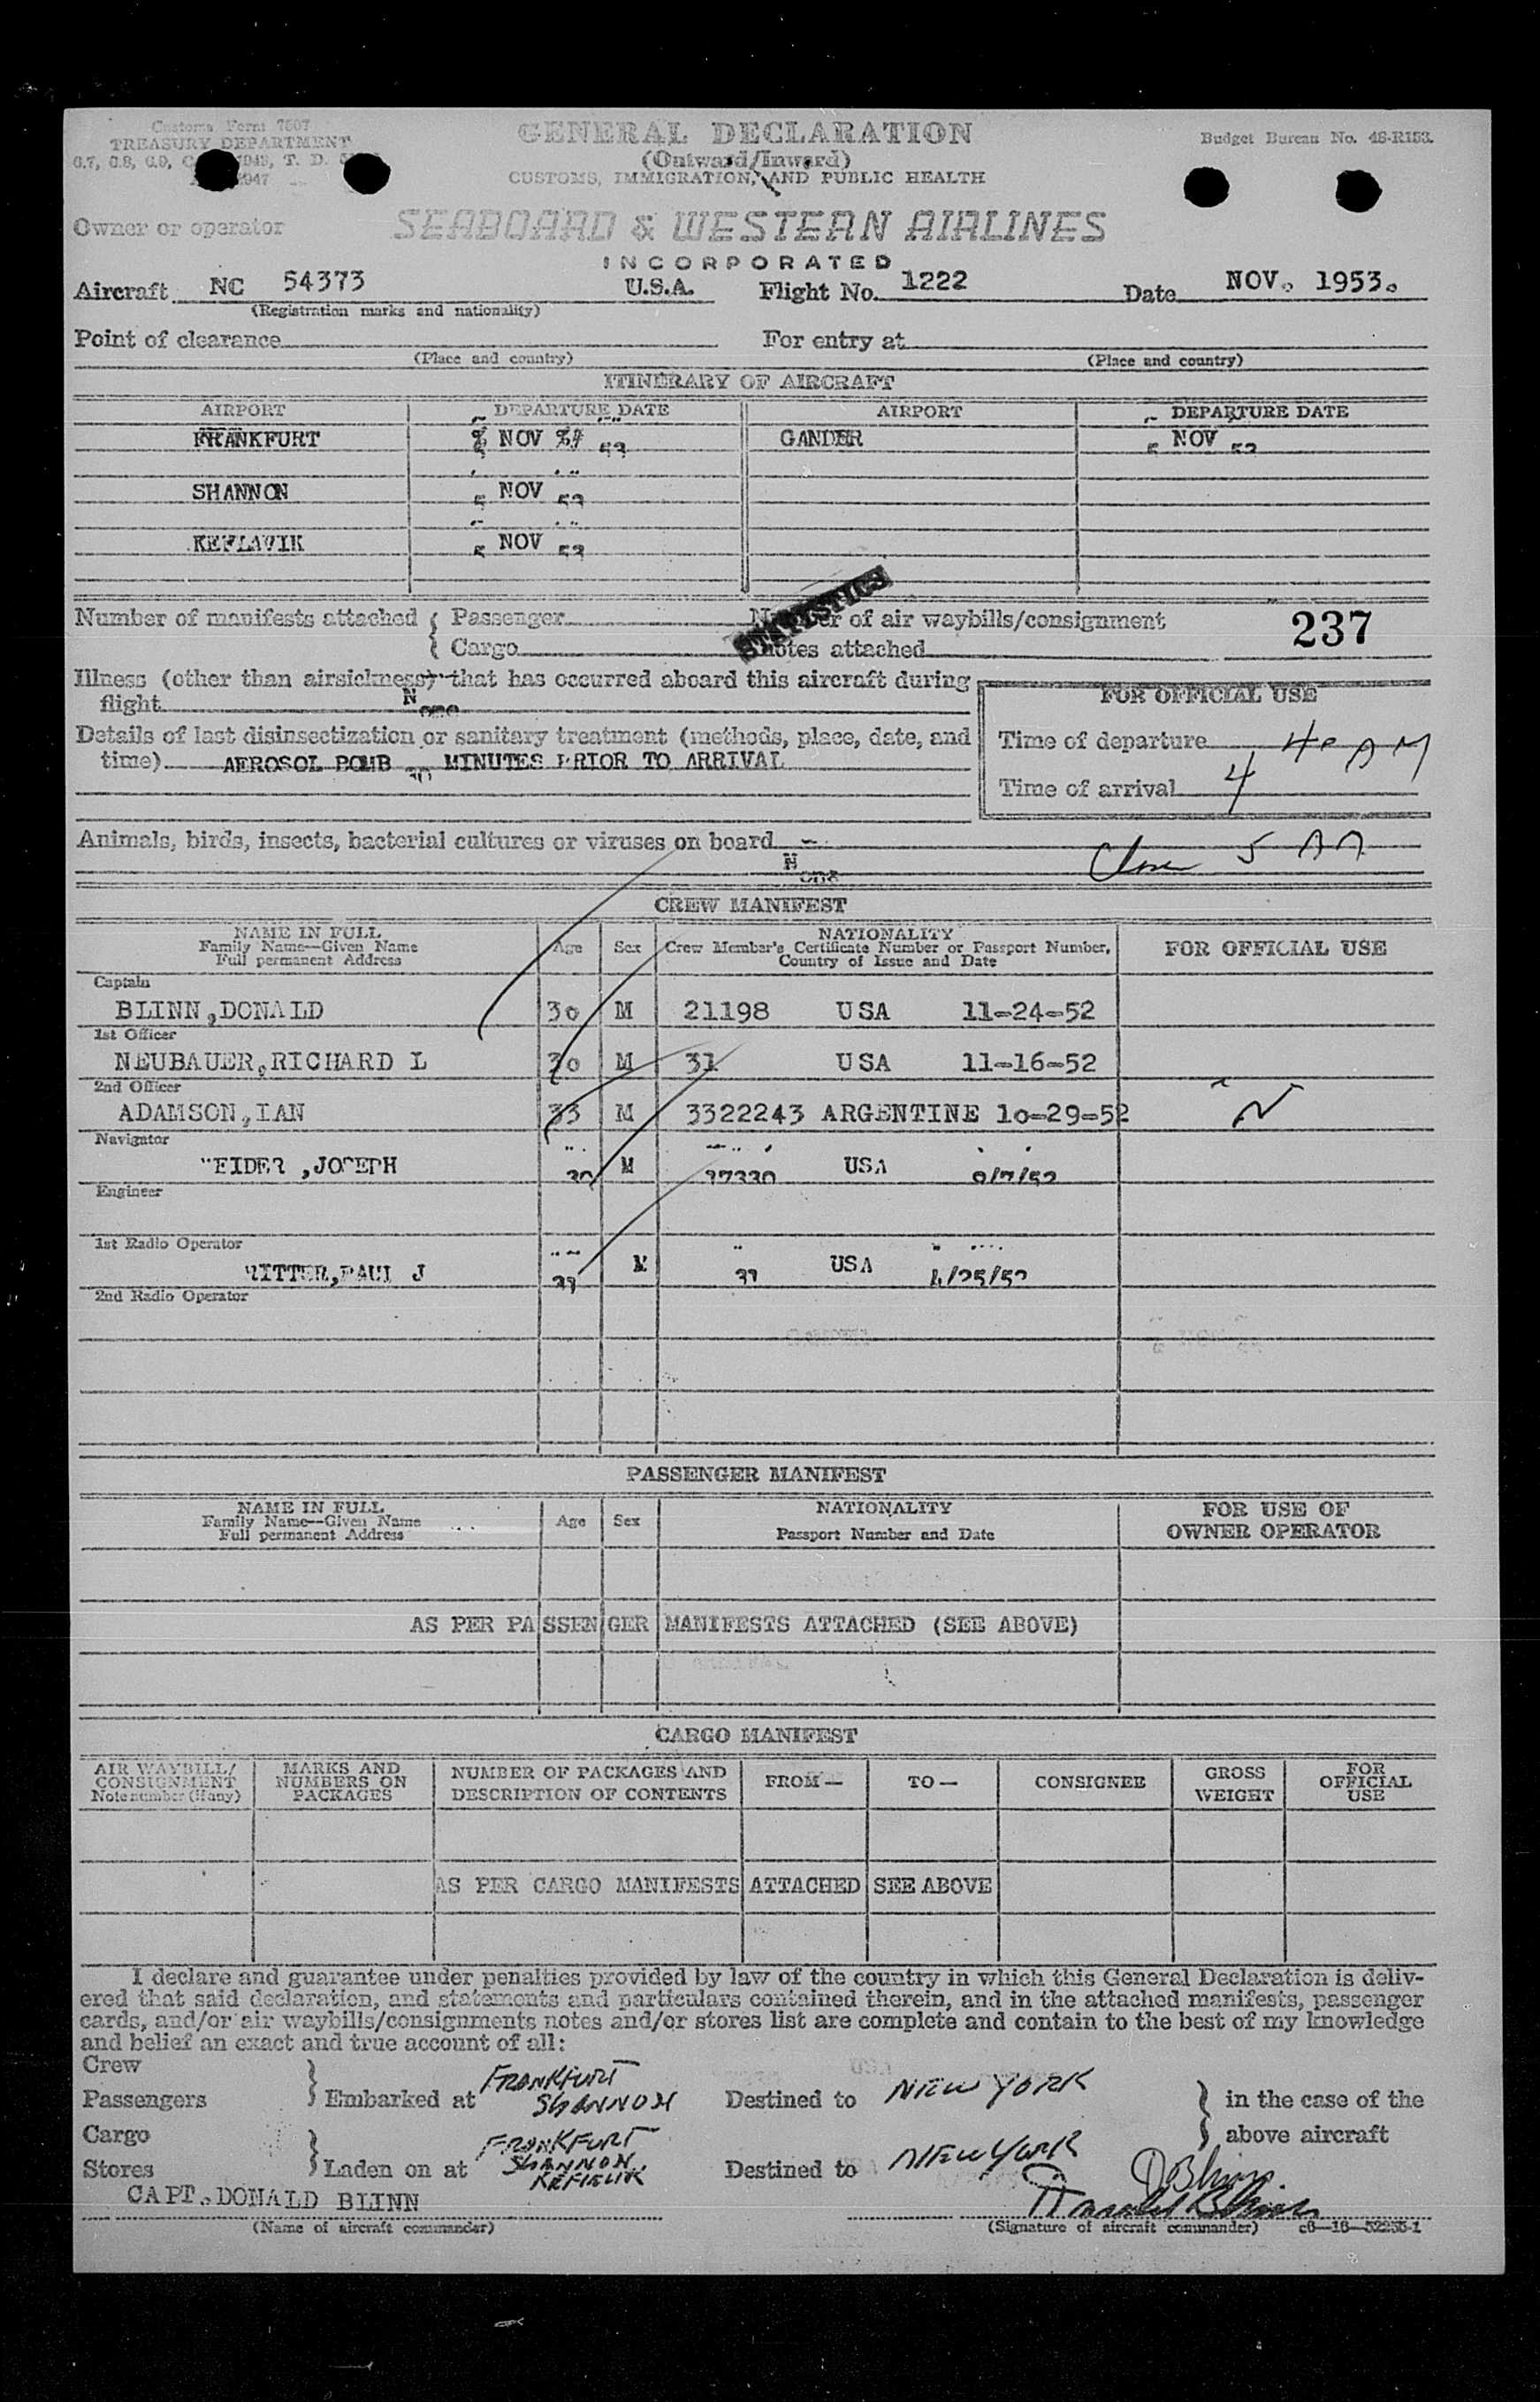 Customs Form 7507
TREASURY DEPARTMENT
GENERAL DECLARATION
(Outward/Inward)
CUSTOMS, IMMIGRATION, AND PUBLIC HEALTH
Budget Bureau No. 48-R153.
Owner or operator SEABOARD & WESTERN AIRLINES
INCORPORATED
Aircraft NC 54373 U.S.A. Flight No. 1222 Date NOV. 1953.
(Registration marks and nationality)
Point of clearance For entry at
(Place and country) (Place and country)
ITINERARY OF AIRCRAFT
AIRPORT DEPARTURE DATE AIRPORT DEPARTURE DATE
FRANKFURT NOV 53 GANDER 5 NOV 53
SHANNON 5 NOV 53
KEFLAVIK 5 NOV 53
STATISTICS
Number of manifests attached { Passenger Number of air waybills/consignment 237
Cargo notes attached
Illness (other than airsickness) that has occurred aboard this aircraft during
flight None
FOR OFFICIAL USE
Details of last disinsectization or sanitary treatment (methods, place, date, and
time) AEROSOL BOMB 30 MINUTES PRIOR TO ARRIVAL
Time of departure
Time of arrival
Animals, birds, insects, bacterial cultures or viruses on board
None
5 AM
CREW MANIFEST
NAME IN FULL
Family Name—Given Name
Full permanent Address
Age Sex
NATIONALITY
Crew Member's Certificate Number or Passport Number,
Country of Issue and Date
FOR OFFICIAL USE
Captain
BLINN,DONALD 30 M 21198 USA 11-24-52
1st Officer
NEUBAUER,RICHARD L 30 M 31 USA 11-16-52
2nd Officer
ADAMSON,IAN 33 M 3322243 ARGENTINE 10-29-52
Navigator
EIDER ,JOSEPH 30 M USA
Engineer
1st Radio Operator
RITTER,PAUL J M USA 4/25/52
2nd Radio Operator
PASSENGER MANIFEST
NAME IN FULL
Family Name—Given Name
Full permanent Address
Age Sex
NATIONALITY
Passport Number and Date
FOR USE OF
OWNER OPERATOR
AS PER PASSENGER MANIFESTS ATTACHED (SEE ABOVE)
CARGO MANIFEST
AIR WAYBILL/
CONSIGNMENT
Note number (if any)
MARKS AND
NUMBERS ON
PACKAGES
NUMBER OF PACKAGES AND
DESCRIPTION OF CONTENTS
FROM—
TO—
CONSIGNEE
GROSS
WEIGHT
FOR
OFFICIAL
USE
AS PER CARGO MANIFESTS ATTACHED SEE ABOVE
I declare and guarantee under penalties provided by law of the country in which this General Declaration is deliv-
ered that said declaration, and statements and particulars contained therein, and in the attached manifests, passenger
cards, and/or air waybills/consignments notes and/or stores list are complete and contain to the best of my knowledge
and belief an exact and true account of all:
Crew
Passengers } Embarked at FRANKFURT SHANNON Destined to NEW YORK } in the case of the
Cargo above aircraft
Stores } Laden on at FRANKFURT SHANNON, KEFLEVIK Destined to NEW YORK
DBlinn
CAPT.DONALD BLINN Donald Blinn
(Name of aircraft commander) (Signature of aircraft commander) c6—16—52255-1